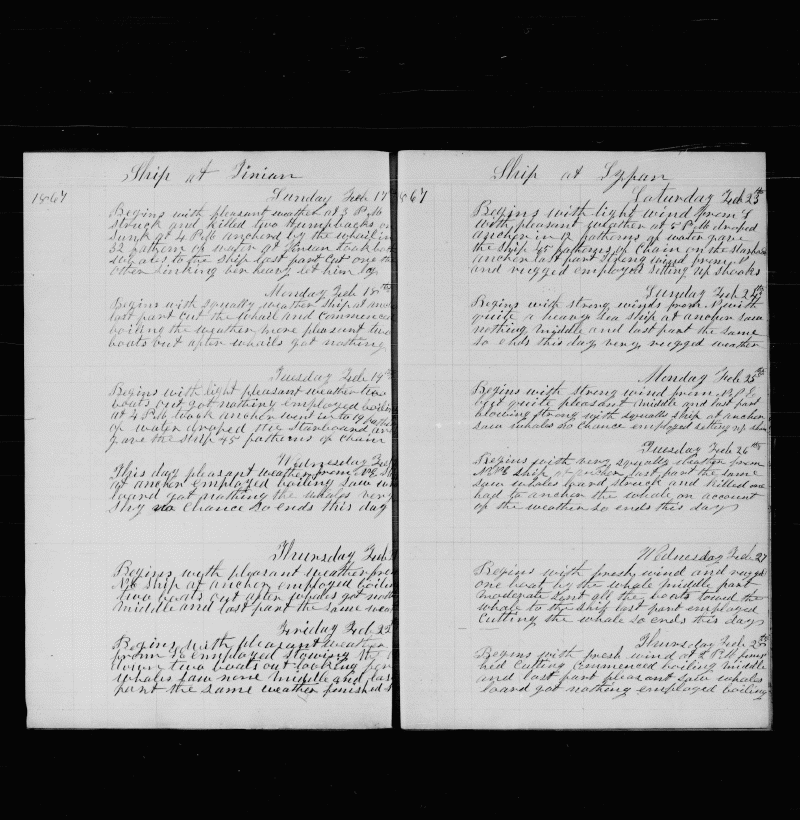 Ship at Tinian
1867
Sunday Feb 17
Begins with pleasant weather at 3 P.M
struck and killed two Humpbacks
sunk at 4 P.M anchored by the whail in
32 pathem of water at Tinian took
to the ship last part cut one the
other sinking ben heavy let him go
Monday Feb 18th
Begins with squally weather ship at
last part cut the whail and commenced
boiling the weather more pleasant two
boats out after whails got nothing
Tuesday Feb 19th
Begins with light pleasant weather two
boats out got nothing employed boiling
at 4 P.M took anchor went in to 19
of water droped the starboard
gave the ship 45 pathems of chain
Wednesday Feb
This day pleasant weather from N.E
at anchor employed boiling saw
loard got nothing the whales very
Shy no Chance So ends this day
Thursday Feb
Begins with pleasant weather from
N.E ship at anchor employed boiling
two boats out after whales got
middle and last part the same
Friday Feb 22
Begins with pleasant weather
from N.E employed stowing
down two boats out looking for
whales saw none middle and
part the same weather finished
Ship at Sypan
1867
Saturday Feb 23th
Begins with light wind from
with pleasant weather at 5 P.M droped
anchor in 12 pathems of water gave
the Ship 45 pathems of Chain on the
anchor last part strong wind from
and rugged employed setting up shooks
Sunday Feb 24th
Begins with strong winds from N with
quite a heavy sea ship at anchor saw
nothing middle and last part the same
so ends this day very rugged weather
Monday Feb 25th
Begins with strong wind from N.E
but quite pleasant middle and last part
blowing strong with squalls ship at anchor
saw whales no chance employed setting up
Tuesday Feb 26th
Begins with very squally weather from
N.E ship at anchor last part the same
saw whales loard struck and killed one
had to anchor the whale on account
of the weather so ends this day
Wednesday Feb 27
Begins with fresh wind and
one boat by the whale middle part
moderate sent all the boats towd the
whale to the ship last part employed
Cutting the whale so ends this day
Thursday Feb 28th
Begins with fresh wind at 2 P.M
hed Cutting Commenced boiling middle
and last part pleasant saw whales
loard got nothing employed boiling